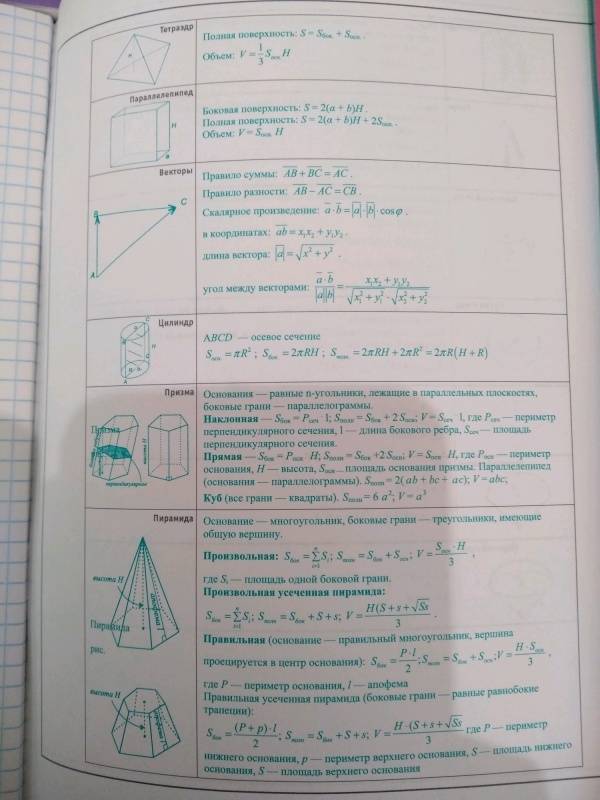 Тетраэдр
H
Полная поверхность: S = Sбок. + Sосн. .
Объем: V = 1/3 Sосн. H
Параллелепипед
H
a
Боковая поверхность: S = 2(a + b)H .
Полная поверхность: S = 2(a + b)H + 2Sосн. .
Объем: V = Sосн. H
Векторы
B
C
A
Правило суммы: AB + BC = AC .
Правило разности: AB − AC = CB .
Скалярное произведение: a · b = |a| · |b| · cosφ .
в координатах: ab = x₁x₂ + y₁y₂ .
длина вектора: |a| = √(x² + y²) .
угол между векторами: a · b / |a||b| = (x₁x₂ + y₁y₂) / (√(x₁² + y₁²) · √(x₂² + y₂²))
Цилиндр
H
A
ABCD — осевое сечение
Sосн = πR² ; Sбок = 2πRH ; Sполн = 2πRH + 2πR² = 2πR(H + R)
Призма
Призма
рис.
высота H
перпендикулярное
Основания — равные n-угольники, лежащие в параллельных плоскостях,
боковые грани — параллелограммы.
Наклонная — Sбок = Pсеч · l; Sполн = Sбок + 2 Sосн; V = Sсеч · l, где Pсеч — периметр
перпендикулярного сечения, l — длина бокового ребра, Sсеч — площадь
перпендикулярного сечения.
Прямая — Sбок = Pосн · H; Sполн = Sбок +2 Sосн; V = Sосн · H, где Pосн — периметр
основания, H — высота, Sосн — площадь основания призмы. Параллелепипед
(основания — параллелограммы). Sполн = 2( ab + bc + ac); V = abc;
Куб (все грани — квадраты). Sполн = 6 a²; V = a³
Пирамида
высота H
апофема l
Пирамида
рис.
высота H
апофема l
Основание — многоугольник, боковые грани — треугольники, имеющие
общую вершину.
Произвольная: Sбок = ∑ⁿᵢ₌₁ Sᵢ; Sполн = Sбок + Sосн; V = Sосн · H / 3 ,
где Sᵢ — площадь одной боковой грани.
Произвольная усеченная пирамида:
Sбок = ∑ⁿᵢ₌₁ Sᵢ; Sполн = Sбок + S + s; V = H(S + s + √Ss / 3 .
Правильная (основание — правильный многоугольник, вершина
проецируется в центр основания): Sбок = P · l / 2 ; Sполн = Sбок + Sосн ; V = H · Sосн / 3 ,
где P — периметр основания, l — апофема
Правильная усеченная пирамида (боковые грани — равные равнобокие
трапеции):
Sбок = (P + p) · l / 2 ; Sполн = Sбок + S + s; V = H · (S + s + √Ss / 3 где P — периметр
нижнего основания, p — периметр верхнего основания, S — площадь нижнего
основания, S — площадь верхнего основания